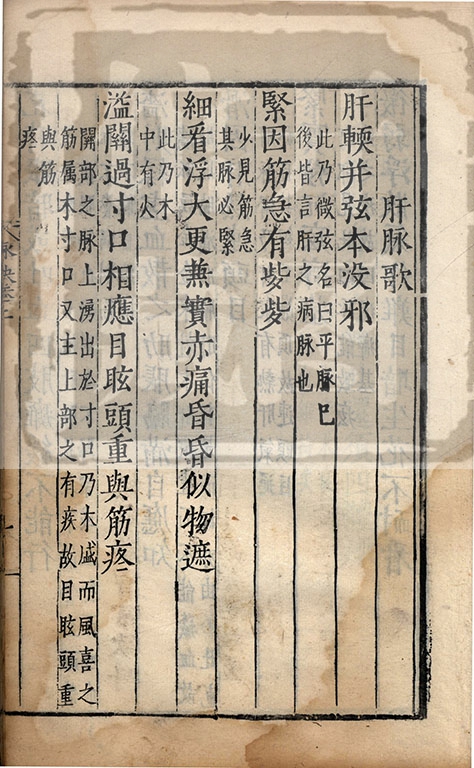 肝脉歌
肝輭并弦本没邪
此乃微弦名曰平脈巳
後皆言肝之病脉也
緊因筋急有些些
少見筋急
其脉必緊
細看浮大更兼實赤痛昏昏似物遮
此乃木
中有火
溢關過寸口相應目眩頭重與筋疼
關部之脉上湧出於寸口乃木盛而風喜之
筋属木寸口又主上部之有疾故目眩頭重
與筋
疼